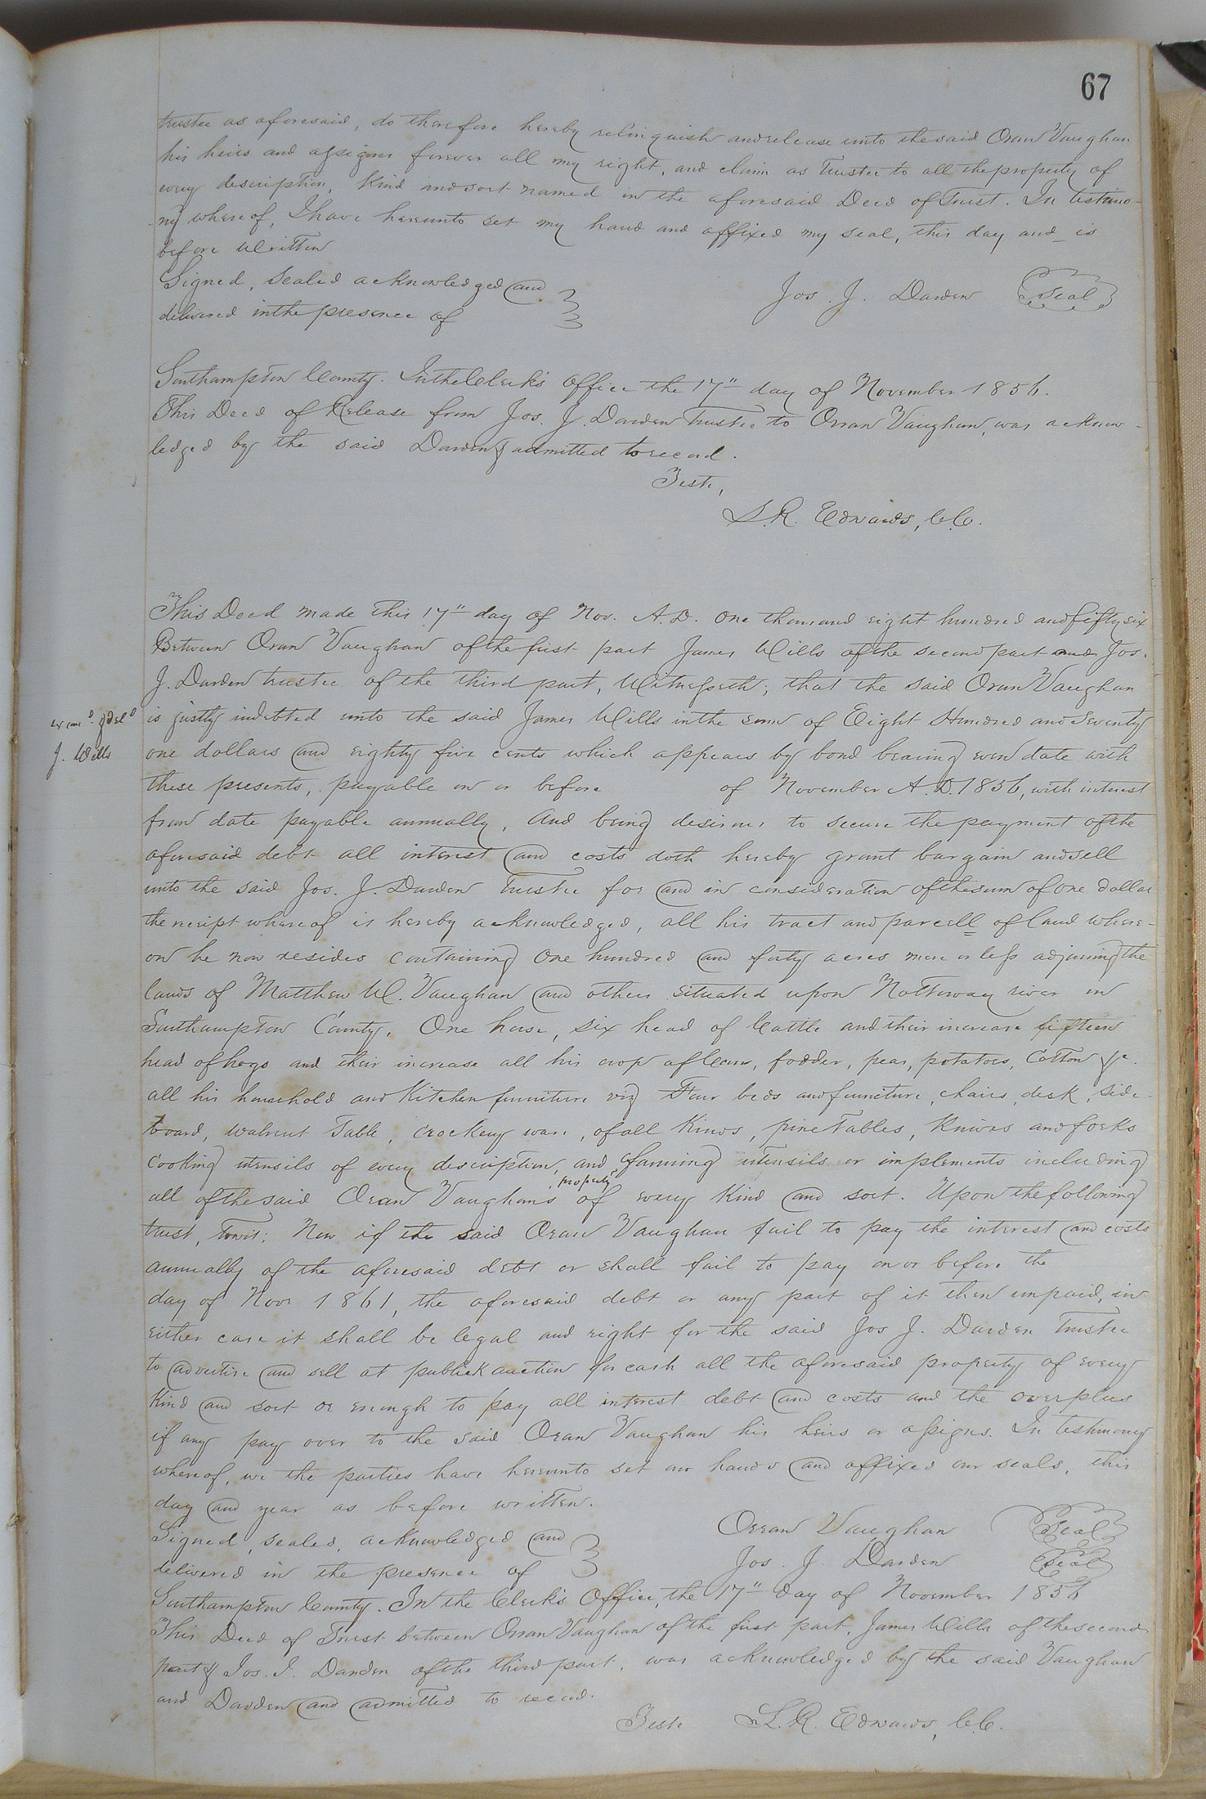 67
trustee as aforesaid, do therefore hereby relinquish and release unto the said Oran Vaughan
his heirs and assigns forever all my right, and claim as Trustee to all the property of
every description, kind and sort named in the aforesaid Deed of Trust. In testimo-
ny whereof, I have hereunto set my hand and affixed my seal, this day and is
before written
Signed, Sealed acknowledged and
delivered in the presence of
Jos. J. Darden Seal
Southampton County. In the Clerk's office the 17" day of November 1856.
This Deed of Release from Jos. J. Darden Trustee to Orran Vaughan, was acknow-
ledged by the said Darden & admitted to record.
Teste,
L. R. Edwards, C.C.
This Deed made this 17" day of Nov. A.D. one thousand eight hundred and fifty six
Between Oran Vaughan of the first part James Wills of the second part and Jos.
J. Darden trustee of the third part, Witnesseth; that the said Oran Vaughan
is justly indebted unto the said James Wills in the sum of Eight Hundred and Seventy
one dollars and eighty five cents which appears by bond bearing even date with
these presents, payable on or before of November A.D. 1856, with interest
from date payable annually, And being desirous to secure the payment of the
aforesaid debt all interest and costs doth hereby grant bargain and sell
unto the said Jos. J. Darden Trustee for and in consideration of the sum of one dollar
the receipt whereof is hereby acknowledged, all his tract and parcell of land where-
on he now resides containing one hundred and forty acres more or less adjoining the
lands of Matthew W. Vaughan and others situated upon Nottoway river in
Southampton County, One horse, six head of Cattle and their increase fifteen
head of hogs and their increase all his crop of Corn, fodder, peas, potatoes, Cotton &c.
all his household and Kitchen furniture viz Four beds and furniture, chairs, desk, side-
board, walnut Table, crockery ware, of all kinds, pine Tables, Knives and forks
cooking utensils of every description, and farming utensils or implements including
all of the said Oran Vaughans property of every kind and sort. Upon the following
trust, Towit: Now if the said Oran Vaughan fail to pay the interest and costs
annually of the aforesaid debt or shall fail to pay on or before the
day of Novr 1861, the aforesaid debt or any part of it then unpaid, in
either case it shall be legal and right for the said Jos J. Darden Trustee
to advertise and sell at publick auction for cash all the aforesaid property of every
Kind and sort or enough to pay all interest debt and costs and the overplus
if any pay over to the said Oran Vaughan his heirs or assigns. In testimony
whereof, we the parties have hereunto set our hands and affixed our seals, this
day and year as before written.
Signed, sealed, acknowledged and
delivered in the presence of
Orran Vaughan Seal
Jos. J. Darden Seal
Southampton County. In the Clerk's Office, the 17" day of November 1856
This Deed of Trust between Orran Vaughan of the first part, James Wills of the second
part & Jos. J. Darden of the third part, was acknowledged by the said Vaughan
and Darden and admitted to record.
Teste L. R. Edwards, C.C.
J. Wills